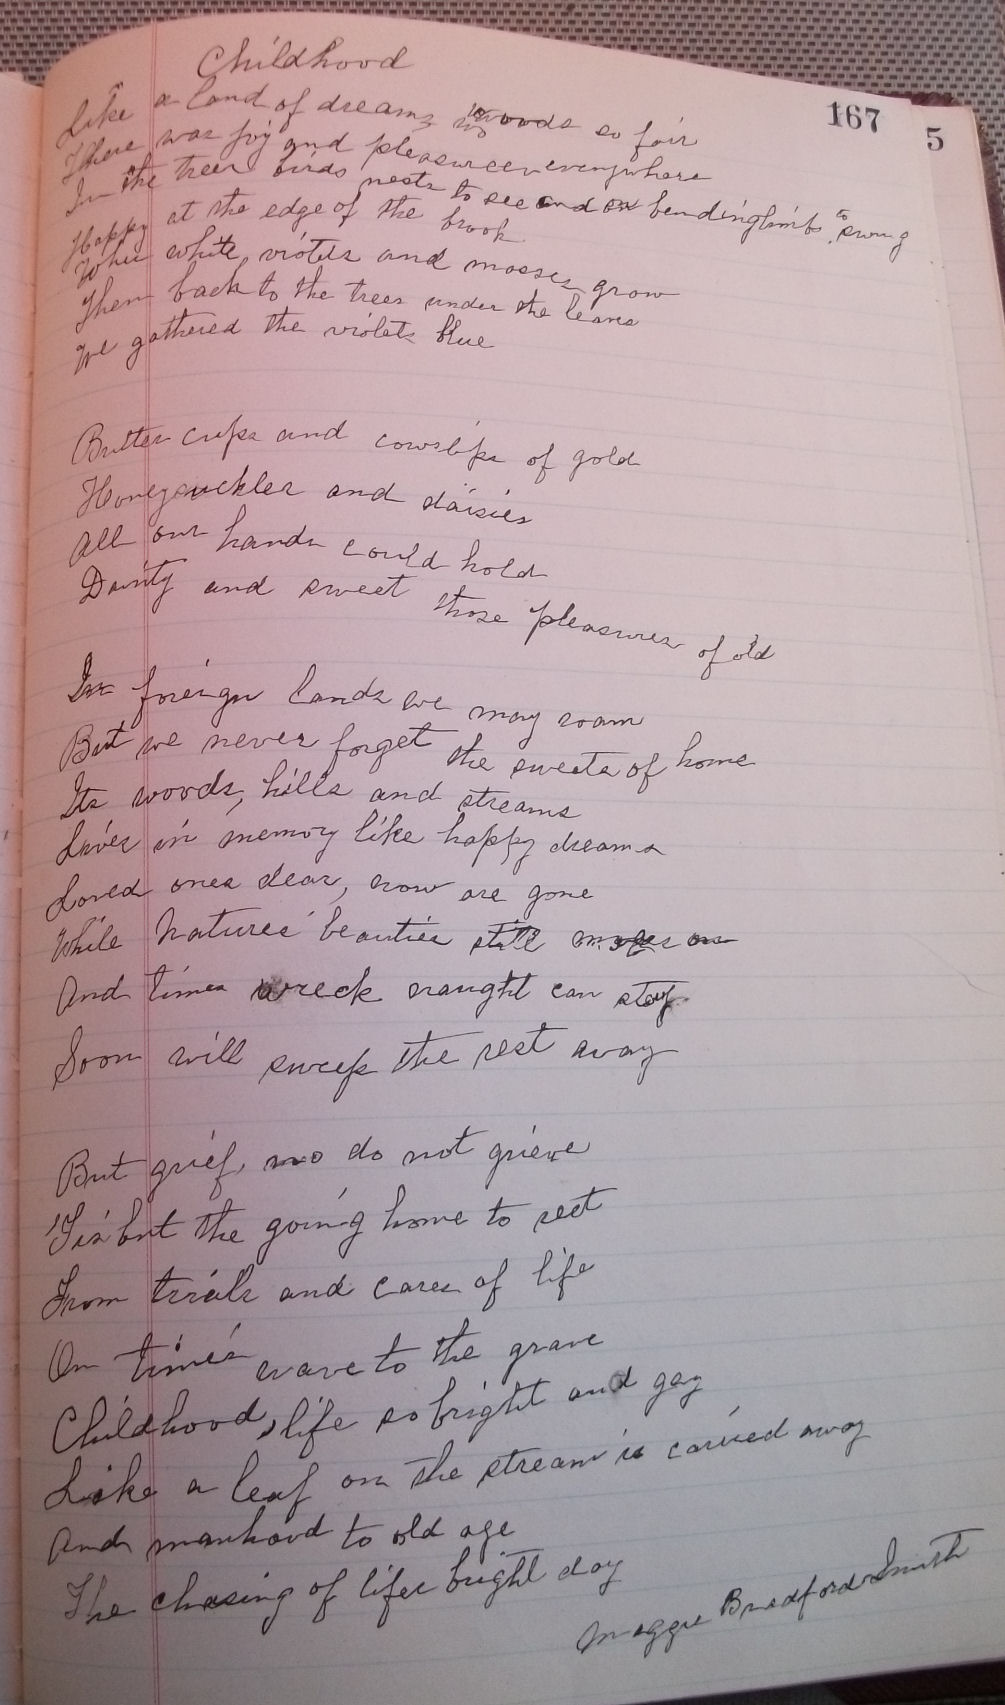 Childhood
167
5
Like a land of dreams woods so fair
There was joy and pleasure everywhere
In the trees birds nests to see and bending limbs to swing
Happy at the edge of the brook
Where white violets and mosses grow
Then back to the trees under the leaves
We gathered the violets blue
Butter cups and cowslips of gold
Honeysuckles and daisies
All our hands could hold
Dainty and sweet those pleasures of old
In foreign lands we may roam
But we never forget the sweets of home
Its woods, hills and streams
Lives in memory like happy dreams
Loved ones dear, now are gone
While Natures' beauties still
And times wreck naught can stay
Soon will sweep the rest away
But grief, no do not grieve
'Tis but the going home to rest
From trials and cares of life
On time's wave to the grave
Childhood, life so bright and gay
Like a leaf on the stream is carried away
And manhood to old age
The closing of lifes bright day
Maggie Bradford Smith